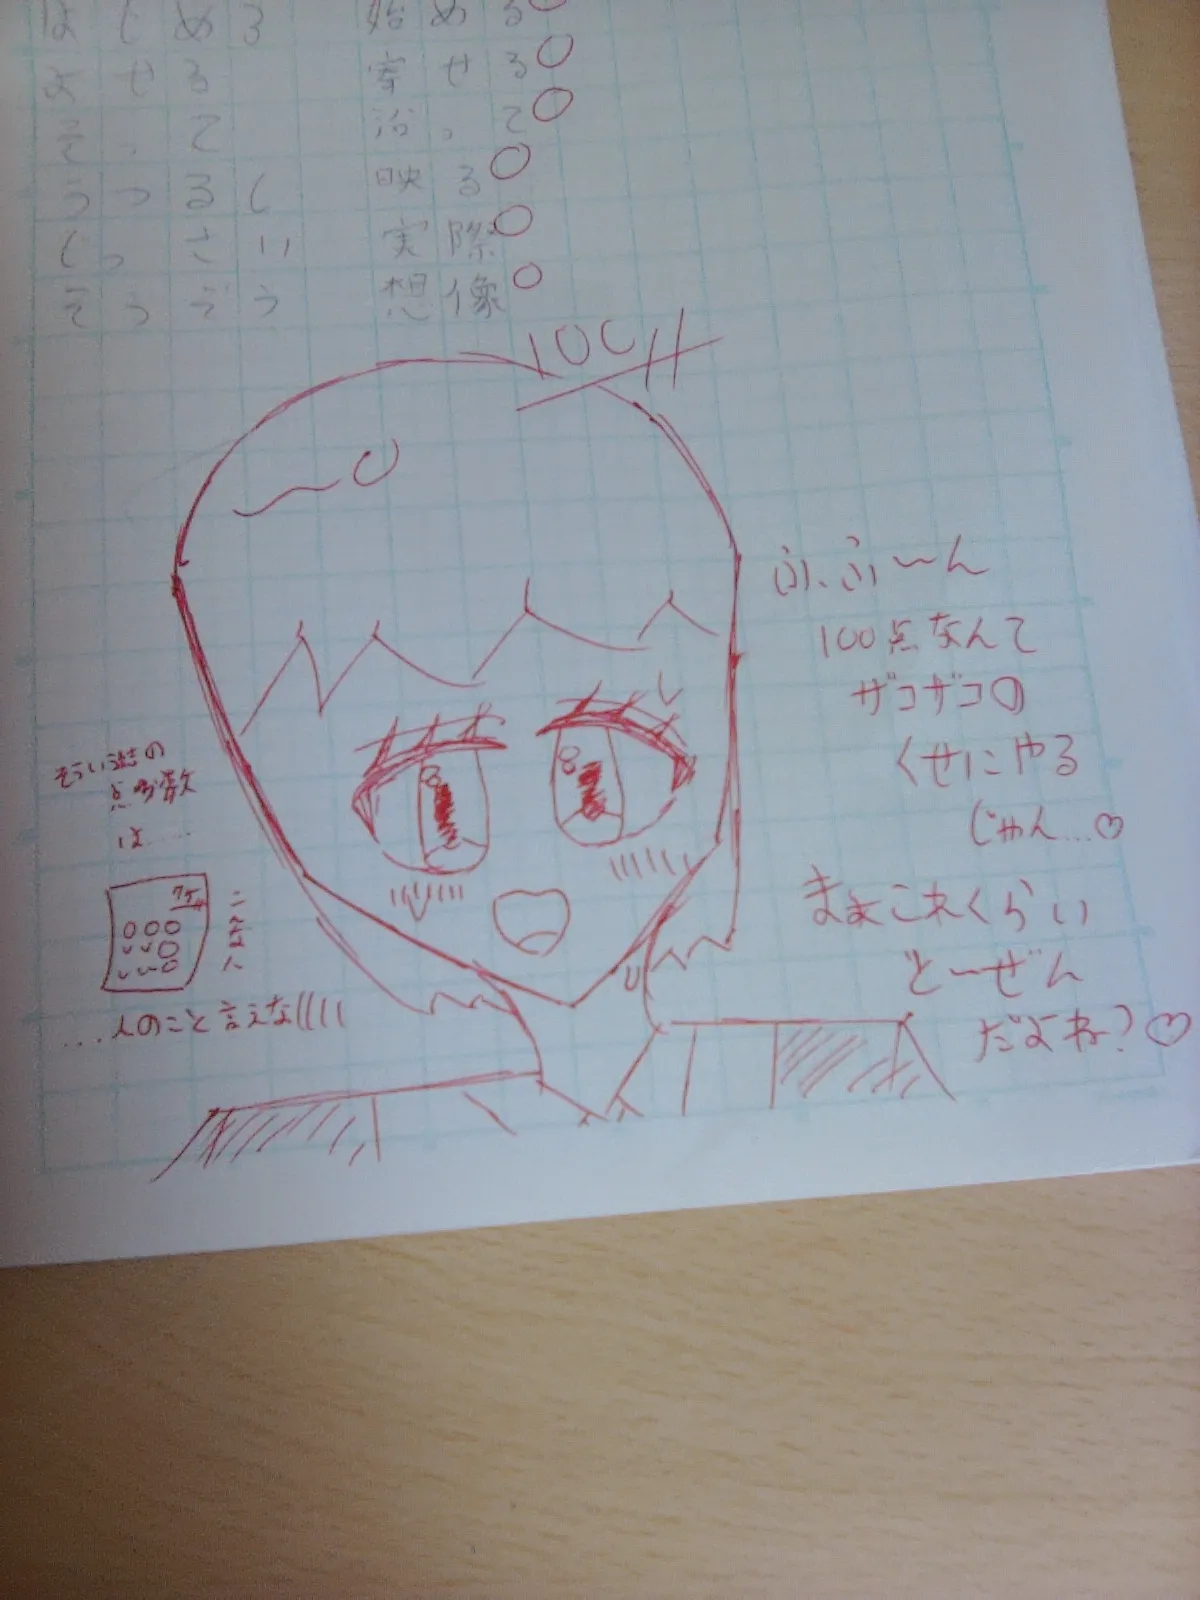 はじめる 始める
よせる 寄せる
そって 沿って
うつる 映る
じっさい 実際
そうぞう 想像
100
ふふ〜ん
100点なんて
ザコザコの
くせにやる
じゃん…♡
まぁこれくらい
とーぜん
だよね?♡
そういう誌の
点数
は……
75
こんな
…人のこと言えな